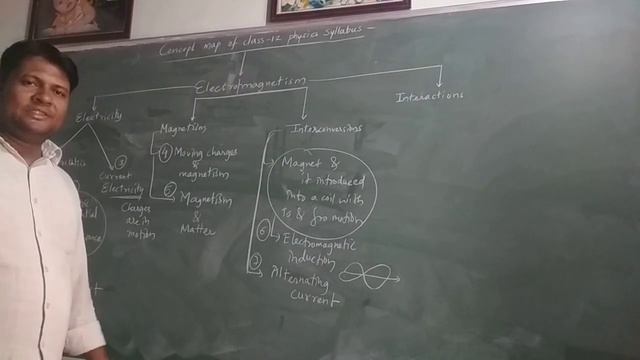 Concept map of class-12 physics syllabus -
Electromagnetism
Electricity
Magnetism
Interconversions
Interactions
③
Current
Electricity
Charges
are in
motion
④ Moving charges
&
magnetism
⑤ Magnetism
&
Matter
Magnet &
it introduced
into a coil with
to & fro motion
⑥ Electromagnetic
induction
⑦ Alternating
current